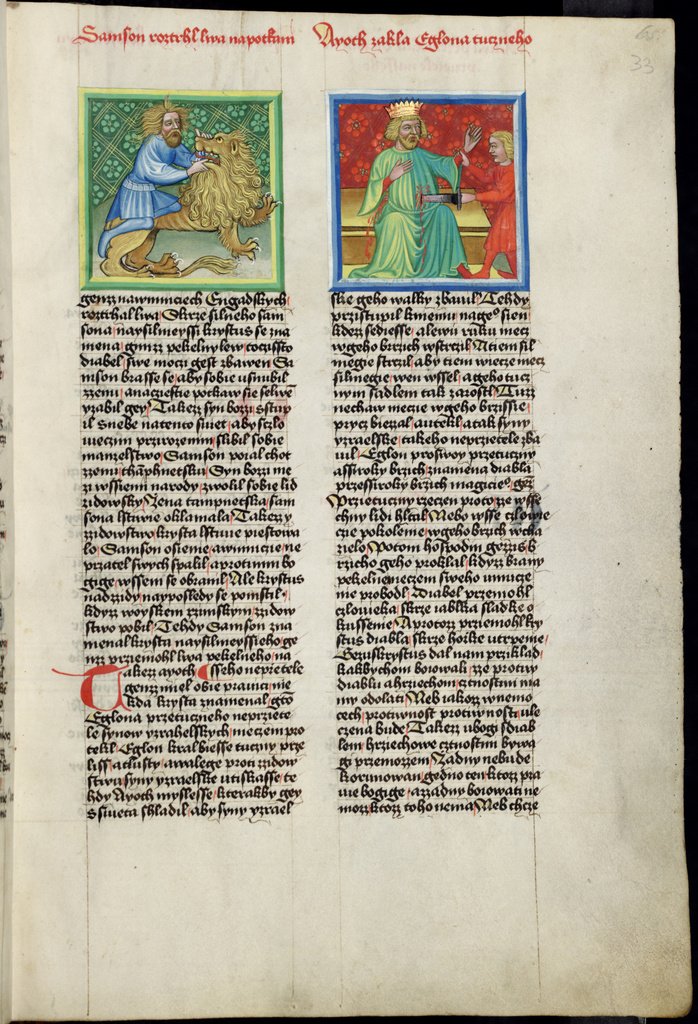 Samson roztrhl lwa napotkaw
Ayoch zakla Eglona tuczneho
33
genz nawinniciech Engadskych
roztrhal lwa Skrze silneho Sam
sona naysilneyssi krystus se zna
mena genz pekelny lew toczissto
diabel swe moci gest zbawen Sa
mson brasse se aby sobie usnubil
zzenu anaczestie potkaw sie se lwem
yzabil gey Takez syn bozi sstup
il snebe natento swiet aby sczlo
wieczim przirozenim slibil sobie
manzelstwo Samson poial chot
zzenu thamphnetsku Syn bozi me
zi wssiemi narody zwolil sobie lid
zidowsky Zena tampnetska sam
sona lstiwie oklamala Takez y
zidowstwo krysta lstiwie piestowa
lo Samson osieme awinnicie ne
przatel swych spalil aprotinim bo
gige wssem se obranil Ale krystus
nadzidy nayposledy se pomstil
kdyz woyskem rzimskym zidow
stwo pobil Tehdy Samson zna
menal krysta naysilneyssieho ge
nz przemohl lwa pekelneho na
Takez ayoch ssseho neprzetele
genz miel obie prawici nie
kda krysta znamenal gto
Eglona przetuczneho neprziete
le synow yzrahelskych meczem pro
tekl Eglon kral biesse tuczny prze
liss atlusty awalege proti zidow
stwu syny yzraelske utiskasse te
hdy Ayoch myslesse kterakby gey
s swieta shladil aby syny yzrael
ske geho walky zbawil Tehdy
przistupil kniemu nageo sien
kdez sediesse alewu ruku mecz
wgeho brzich wstrczil Atiem sil
niegie strzil aby tiem wiecze mecz
silniegie wen wssel ageho tucz
nym sadlem tak zarostl Tuz
nechaw mecze wgeho brzissie
prycz biezal autekl atak syny
yzraelske takeho neprzietele zba
wil Eglon prosiwoy przetuczny
assiroky brzich znamena diabla
przessiroky brzich magicieo gez
Przietuczny rzeczen proto ze wsse
chny lidi hltal Nebo wsse czlowie
cze pokolenie wgeho brzich wcha
zielo Potom hospodin gezis b
rzicho geho proklal kdyz brany
pekelne meczem sweho umucze
nie probodl Diabel przemohl
czlowieka skrze iablka sladke o
kussenie Aprotoz przemohl kry
stus diabla skrze horzke utrpenie
Gezuskrystus dal nam przielad
kakbychom boiowali ze protiw
diablu ahrziechom cztnostmi ma
my odolati Neb iakoz wnemo
cech protiwnost protiwnosti ule
czena bude Takez ubogi sdiab
lem hrziechowe cztnostmi bywa
gi przemozeni Zadny nebude
korunowan gedno ten ktoz pra
wie bogige azzadny boiowati ne
moz ktoz toho nema Neb chcze